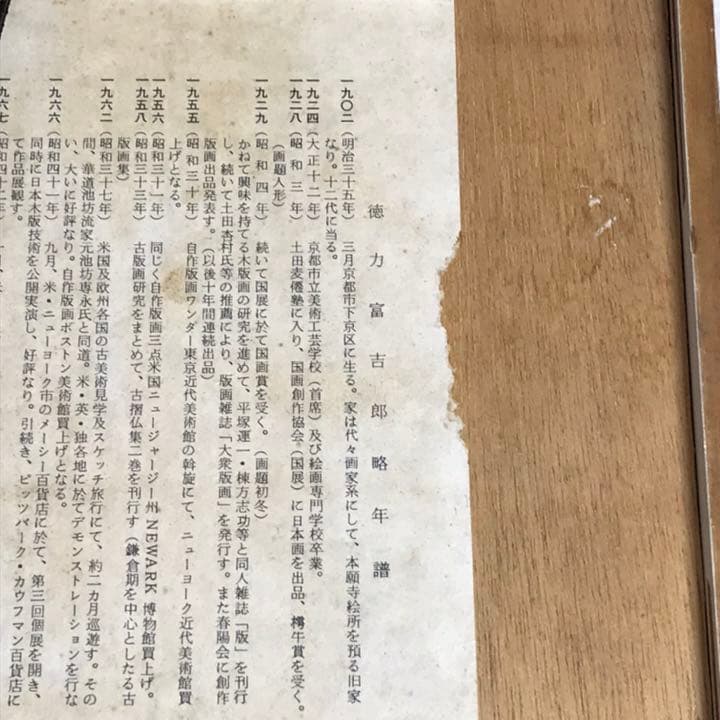 徳力富吉郎略年譜
一九〇二(明治三十五年) 三月京都市下京区に生る。家は代々画家系にして、本願寺絵所を預る旧家
なり。十二代に当る。
一九二四(大正十二年) 京都市立美術工芸学校(首席)及び絵画専門学校卒業。
一九二八(昭和三年) 土田麦僊塾に入り、国画創作協会(国展)に日本画を出品、樗牛賞を受く。
(画題人形)
一九二九(昭和四年) 続いて国展に於て国画賞を受く。(画題初冬)
かねて興味を持てる木版画の研究を進めて、平塚運一・棟方志功等と同人雑誌「版」を刊行
し、続いて土田杏村氏等の推薦により、版画雑誌「大衆版画」を発行す。また春陽会に創作
版画出品発表す。(以後十年間連続出品)
一九五五(昭和三十年) 自作版画ワンダー東京近代美術館の斡旋にて、ニューヨーク近代美術館買
上げとなる。
一九五六(昭和三十一年) 同じく自作版画三点米国ニュージャージー州NEWARK博物館買上げ。
一九五八(昭和三十三年) 古版画研究をまとめて、古摺仏集二巻を刊行す(鎌倉期を中心としたる古
版画集)
一九六二(昭和三十七年) 米国及欧州各国の古美術見学及スケッチ旅行にて、約二カ月巡遊す。その
間、華道池坊流家元池坊専永氏と同道。米・英・独各地に於てデモンストレーションを行な
い、大いに好評なり。自作版画ボストン美術館買上げとなる。
一九六六(昭和四十一年) 九月、米・ニューヨーク市のメーシー百貨店に於て、第三回個展を開き、
同時に日本木版技術を公開実演し、好評なり。引続き、ピッツバーク・カウフマン百貨店に
て作品展観す。
一九六七(昭和四十二年)